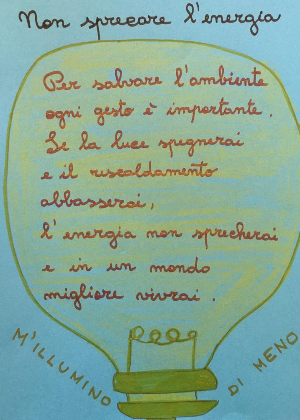 Non sprecare l'energia
Per salvare l'ambiente
ogni gesto è importante.
Se la luce spegnerai
e il riscaldamento
abbasserai,
l'energia non sprecherai
e in un mondo
migliore vivrai.
M'ILLUMINO DI MENO